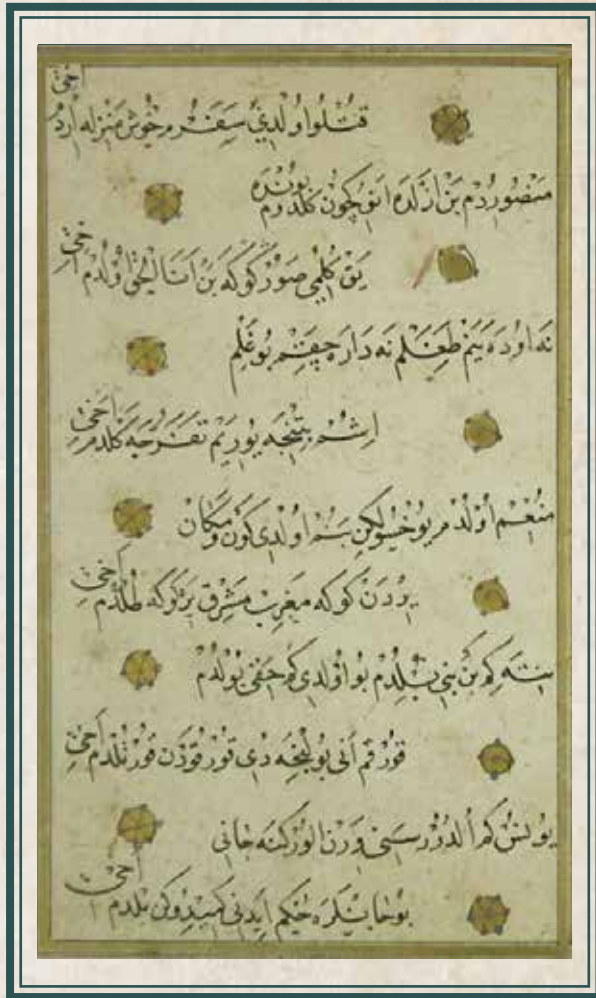 قتلو اولدی سفرم خوش منزله ایردم اخی
منصوردم بن ازلده انوڭچون كلدم بونده
یق كلمی صور كوكه بن انا الحق اولدم اخی
نه اوده ینم طغلم نه داره چقم بوغلم
اشم بتنجه یوریم تفرجه كلدم اخی
منعم اولدم یوخسولكن بنم اولدی كون و مكان
یردن كوكه مغرب مشرق یر كوكه طلدم اخی
نته كم بن بنی بلدم بو اولدی كم حقی بولدم
قورقم انی بولنجه دی قورقودن قورتلدم اخی
یونس كم الدرر سنی ورن الور كنه جانی
بو جانلره حكم ایدنی كمیدوكن بلدم اخی